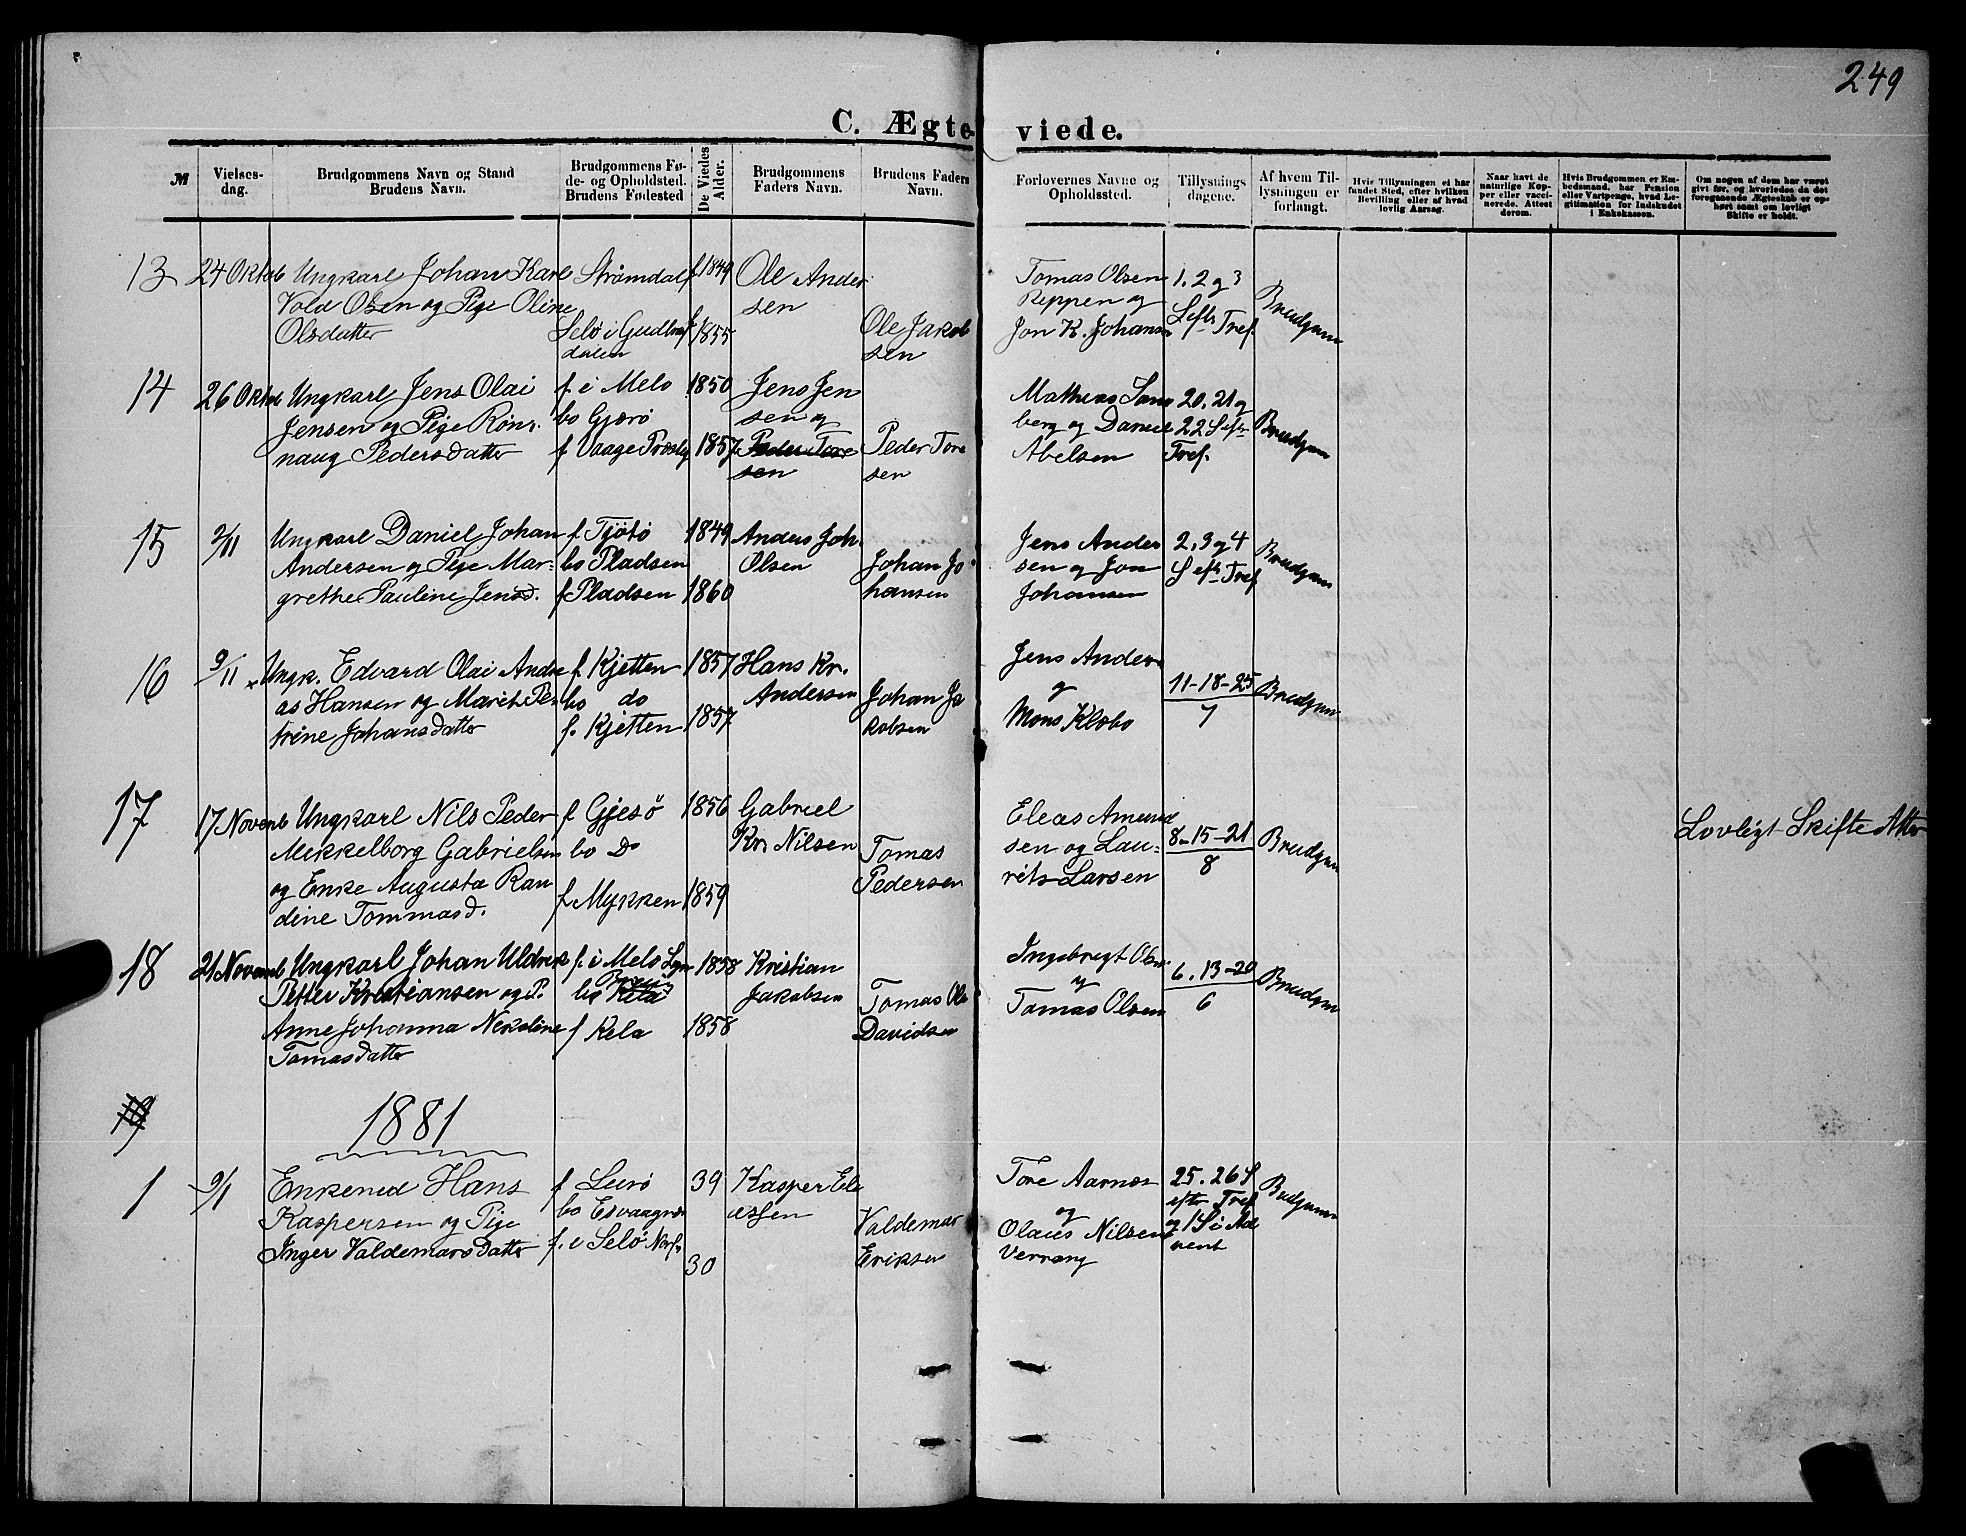 249
C. Ægteviede.
№
Vielsesdag.
Brudgommens Navn og Stand
Brudens Navn.
Brudgommens Fø-
de- og Opholdsted.
Brudens Fødested
De Viedes
Alder.
Brudgommens
Faders Navn.
Brudens Faders
Navn.
Forlovernes Navne og
Opholdssted.
Tillysnings
dagene.
Af hvem Til-
lysningen er
forlangt.
Hvis Tillysningen ei har
fundet Sted, efter hvilken
Bevilling eller af hvad
lovlig Aarsag.
Naar havt de
naturlige Kop-
per eller vacci-
nerede. Attest
derom.
Hvis Brudgommen er Em-
bedsmand, har Pension
eller Vartpenge, hvad Le-
gitimation for Indskudet
i Enkekassen.
Om nogen af dem har været
givt før, og hvorledes da det
foregaaende Ægteskab er op-
hørt samt om lovligt
Skifte er holdt.
13
24 Oktob
Ungkarl Johan Karl
Vold Olsen og Pige Oline
Olsdatter
Strømdal
Selö i Gudbrs
dalen
f 1849
f. 1855
Ole Ander
sen
Ole Jakob
sen
Tomas Olsen
Reppen og
Jon K. Johansn
1. 2 og 3
S eftr Tref.
Brudgum
14
26 Oktob
Ungkarl Jens Olai
Jensen og Pige Rön-
naug Pedersdatter
f. i Melo
bo Gjærö
f Vaage Præstg
1850
1857
Jens Jen
sen og
Peder Tore
sen
Peder Tore
sen
Mathias Sand
berg og Daniel
Abelsen
20. 21 og
22 S eftr
Tref.
Brudgum
15
2/11
Ungkarl Daniel Johan
Andersen og Pige Mar-
grethe Pauline Jensd.
f Tjötö
bo Pladsen
f Pladsen
1849
1860
Anders Joh.
Olsen
Johan Jo
hansen
Jens Ander
sen og Jon
Johansen
2. 3 og 4
S eftr Tref
Brudgum
16
9/11
Ungk. Edvard Olai Andre
as Hansen og Marit Pe
trine Johansdatter
f. Kjetten
bo do
f. Kjetten
1857
1857
Hans Kr.
Andersen
Johan Ja
kobsen
Jens Anders
og
Mons Klobo
11-18-25
7
Brudgum
17
17 Novemb
Ungkarl Nils Peder
Mikkelborg Gabrielsen
og Enke Augusta Ran
dine Tommasd.
f Gjesö
bo Do
f Mykken
1856
1859
Gabriel
Kr. Nilsen
Tomas
Pedersen
Eleas Amund
sen og Lau-
rits Larsen
8-15-21
8
Brudgum
Lovligt Skifte Atter
18
21 Novemb
Ungkarl Johan Uldrik
Petter Kristiansen og P.
Anne Johanna Nekoline
Tomasdatter
f. i Melo
bo Kila
f Kila
1858
1858
Kristian
Jakobsen
Tomas Ole
Davidsen
Ingebrigt Olsen
og
Tomas Olsen
6. 13-20
6
Brudgum
19
1881
1
9/1
Enkemd Hans
Kaspersen og Pige
Inger Valdemarsdatter
f Lurö
bo Esvaagnes
f. i Selö
39
30
Kasper Eli
assen
Valdemar
Eriksen
Tore Aarnes
og
Olaus Nilsen
Verrang
25. 26 S
eftr Tref
og 1 S i Ad
vent
Brudgum